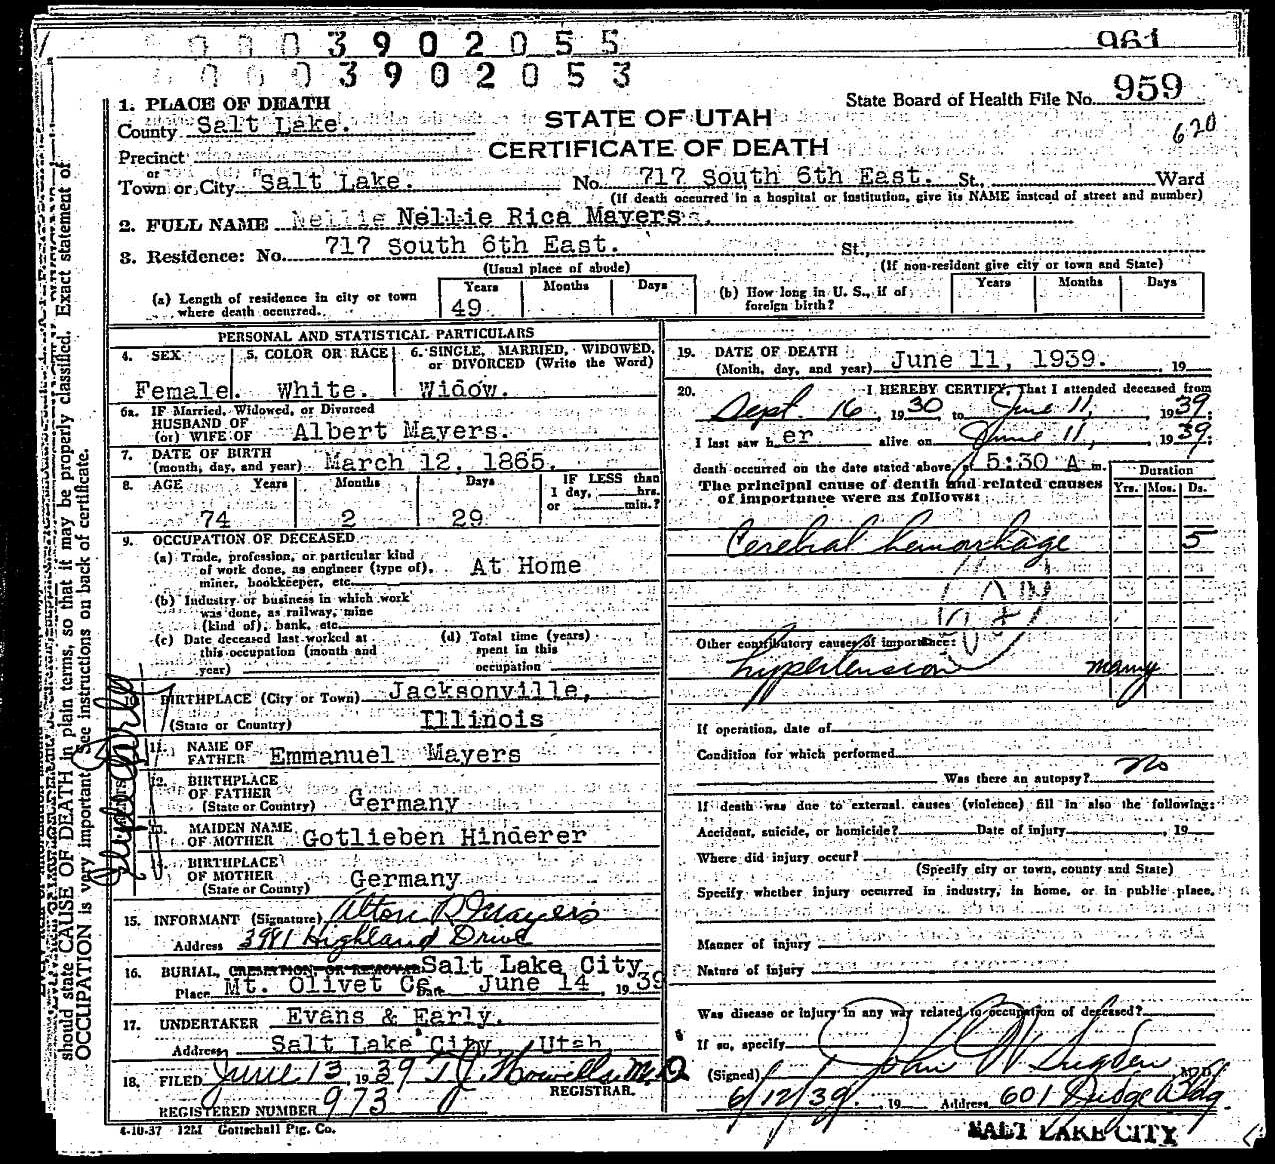 0003902055
961
0003902053
State Board of Health File No. 959
620
1. PLACE OF DEATH
County Salt Lake.
STATE OF UTAH
CERTIFICATE OF DEATH
Precinct
or
Town or City Salt Lake. No. 717 South 6th East. St., Ward
(If death occurred in a hospital or institution, give its NAME instead of street and number)
2. FULL NAME Nellie Nellie Rica Mayers.
3. Residence: No. 717 South 6th East. St.,
(Usual place of abode) (If non-resident give city or town and State)
(a) Length of residence in city or town where death occurred. Years 49 Months Days
(b) How long in U. S., if of foreign birth? Years Months Days
PERSONAL AND STATISTICAL PARTICULARS
4. SEX 5. COLOR OR RACE 6. SINGLE, MARRIED, WIDOWED, or DIVORCED (Write the Word)
Female. White. Widow.
6a. IF Married, Widowed, or Divorced
HUSBAND OF
(or) WIFE OF Albert Mayers.
7. DATE OF BIRTH
(month, day, and year) March 12, 1865.
8. AGE Years Months Days IF LESS than
1 day, hrs.
or min.?
74 2 29
9. OCCUPATION OF DECEASED
(a) Trade, profession, or particular kind
of work done, as engineer (type of), At Home
miner, bookkeeper, etc.
(b) Industry or business in which work
was done, as railway, mine
(kind of), bank, etc.
(c) Date deceased last worked at
this occupation (month and
year)
(d) Total time (years)
spent in this
occupation
BIRTHPLACE (City or Town) Jacksonville,
(State or Country) Illinois
11. NAME OF
FATHER Emmanuel Mayers
12. BIRTHPLACE
OF FATHER
(State or Country) Germany
13. MAIDEN NAME
OF MOTHER Gotlieben Hinderer
14. BIRTHPLACE
OF MOTHER
(State or County) Germany
15. INFORMANT (Signature) Alton R Mayers
Address 3981 Highland Drive
16. BURIAL, CREMATION, OR REMOVAL Salt Lake City
Place Mt. Olivet Ce Date June 14, 1939
17. UNDERTAKER Evans & Early.
Address Salt Lake City, Utah
18. FILED June 13 1939 T.J. Howells M.D
REGISTRAR.
REGISTERED NUMBER 973
4-10-37 12M Gottschall Ptg. Co.
19. DATE OF DEATH
(Month, day, and year) June 11, 1939. 19
20. I HEREBY CERTIFY, That I attended deceased from
Sept. 16, 1930 to June 11, 1939;
I last saw her alive on June 11, 1939;
death occurred on the date stated above, at 5:30 A m.
The principal cause of death and related causes
of importance were as follows:
Duration
Yrs. Mos. Ds.
Cerebral hemorrhage 5
Other contributory causes of importance:
hypertension many
If operation, date of
Condition for which performed
Was there an autopsy? No
If death was due to external causes (violence) fill in also the following:
Accident, suicide, or homicide? Date of injury , 19
Where did injury occur?
(Specify city or town, county and State)
Specify whether injury occurred in industry, in home, or in public place.
Manner of injury
Nature of injury
Was disease or injury in any way related to occupation of deceased?
If so, specify
(Signed) John W Sugden, M.D.
6/12/39. , 19 Address 601 Judge Bldg.
SALT LAKE CITY
should state CAUSE OF DEATH in plain terms, so that it may be properly classified. Exact statement of
OCCUPATION is very important. See instructions on back of certificate.